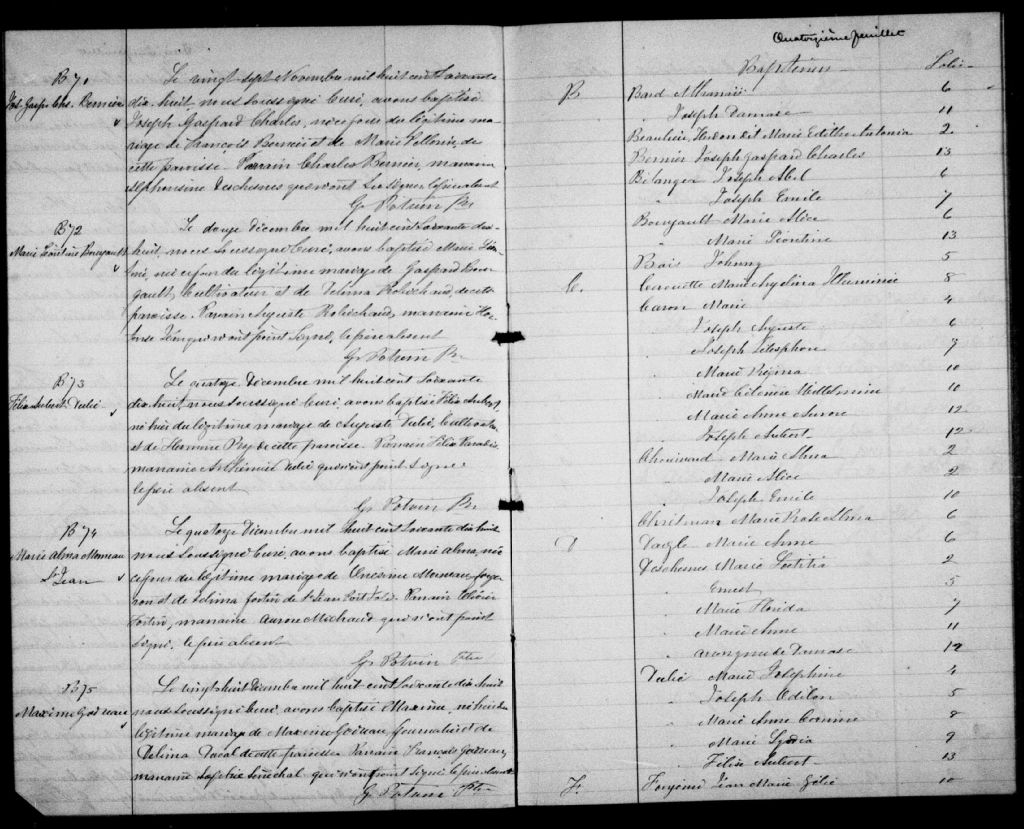 B 71
Jos. Gasp. Chs. Bernier
Le vingt-sept Novembre mil huit cent soixante
dix-huit, nous soussigné Curé, avons baptisé
Joseph Gaspard Charles, né ce jour du légitime ma-
riage de François Bernier et de Marie Pelletier, de
cette paroisse. Parrain Charles Bernier, marraine
Alphonsine Deschesnes qui n'ont su signer le père absent
G. Potvin Ptr.
B 72
Marie Léontine Bourgault
Le douze Décembre mil huit cent soixante dix-
huit, nous soussigné Curé, avons baptisé Marie Léon-
tine, née ce jour du légitime mariage de Gaspard Bour-
gault, Cultivateur et de Delima Robichaud, de cette
paroisse. Parrain Auguste Robichaud, marraine
qui n'ont point signé, le père absent
G. Potvin Ptr.
B 73
Félix Aubert Dubé
Le quatorze Décembre mil huit cent soixante
dix-huit, nous soussigné Curé, avons baptisé Félix Aubert,
né hier du légitime mariage de Auguste Dubé,
et de Hermine Roy de cette paroisse. Parrain Félix Paradis
marraine Arthémise Dubé qui n'ont point signé
le père absent
G. Potvin Ptr.
B 74
Marie Alma Morneau
St Jean
Le quatorze Décembre mil huit cent soixante dix huit
nous soussigné Curé, avons baptisé Marie Alma, née
ce jour du légitime mariage de Onésime Morneau forge-
ron et de Delima Fortin de St Jean Port Joli. Parrain Olivier
Fortin, marraine Aurore Michaud qui n'ont point
signé, le père absent
G. Potvin Ptre
B 75
Maxime Godreau
Le vingt huit Décembre mil huit cent soixante dix huit
nous soussigné Curé, avons baptisé Maxime, né hier du
légitime mariage de Maxime Godreau, journalier et de
Delima Duval de cette paroisse Parrain François Godreau,
marraine Sophie Sénéchal qui n'ont point signé le père absent
G. Potvin Ptre
Quatorzième feuillet
Baptêmes Folio
B Bard Athanase 6
" Joseph Damase 11
Beaulieu Marie Edithe Antonia 2
Bernier Joseph Gaspard Charles 13
Bélanger Joseph Abel 6
" Joseph Emile 7
Bourgault Marie Alice 6
" Marie Léontine 13
Bois Johnny 5
C. Carouette Marie Angelina Illuminée 8
Caron Marie 4
" Joseph Auguste 6
" Joseph Télesphore 7
" Marie Régina 10
" Marie Célénire 10
" Marie Anne Aurore 12
" Joseph Aubert 12
Chouinard Marie Alma 2
" Marie Alice 2
" Joseph Emile 10
Marie Rose Alma 6
D Daigle Marie Anne 6
Deschesnes Marie Lætitia 2
" Ernest 5
" Marie Florida 7
" Marie Anne 11
" anonyme de Damase 12
Dubé Marie Joséphine 4
" Joseph Odilon 5
" Marie Anne Corinne 8
" Marie Lydia 9
" Félix Aubert 13
F. Jean Marie 10